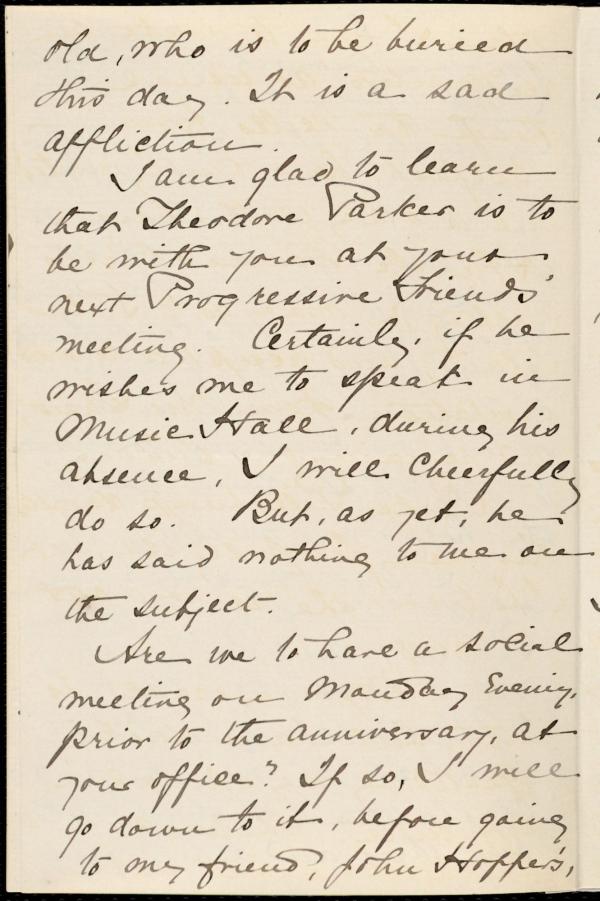 old, who is to be buried
this day. It is a sad
affliction.
I am glad to learn
that Theodore Parker is to
be with you at your
next Progressive Friends'
meeting. Certainly, if he
wishes me to speak in
Music Hall, during his
absence, I will cheerfully
do so. But, as yet, he
has said nothing to me on
the subject.
Are we to have a social
meeting on Monday Evening,
prior to the anniversary, at
your office? If so, I will
go down to it, before going
to my friend, John Hopper's,